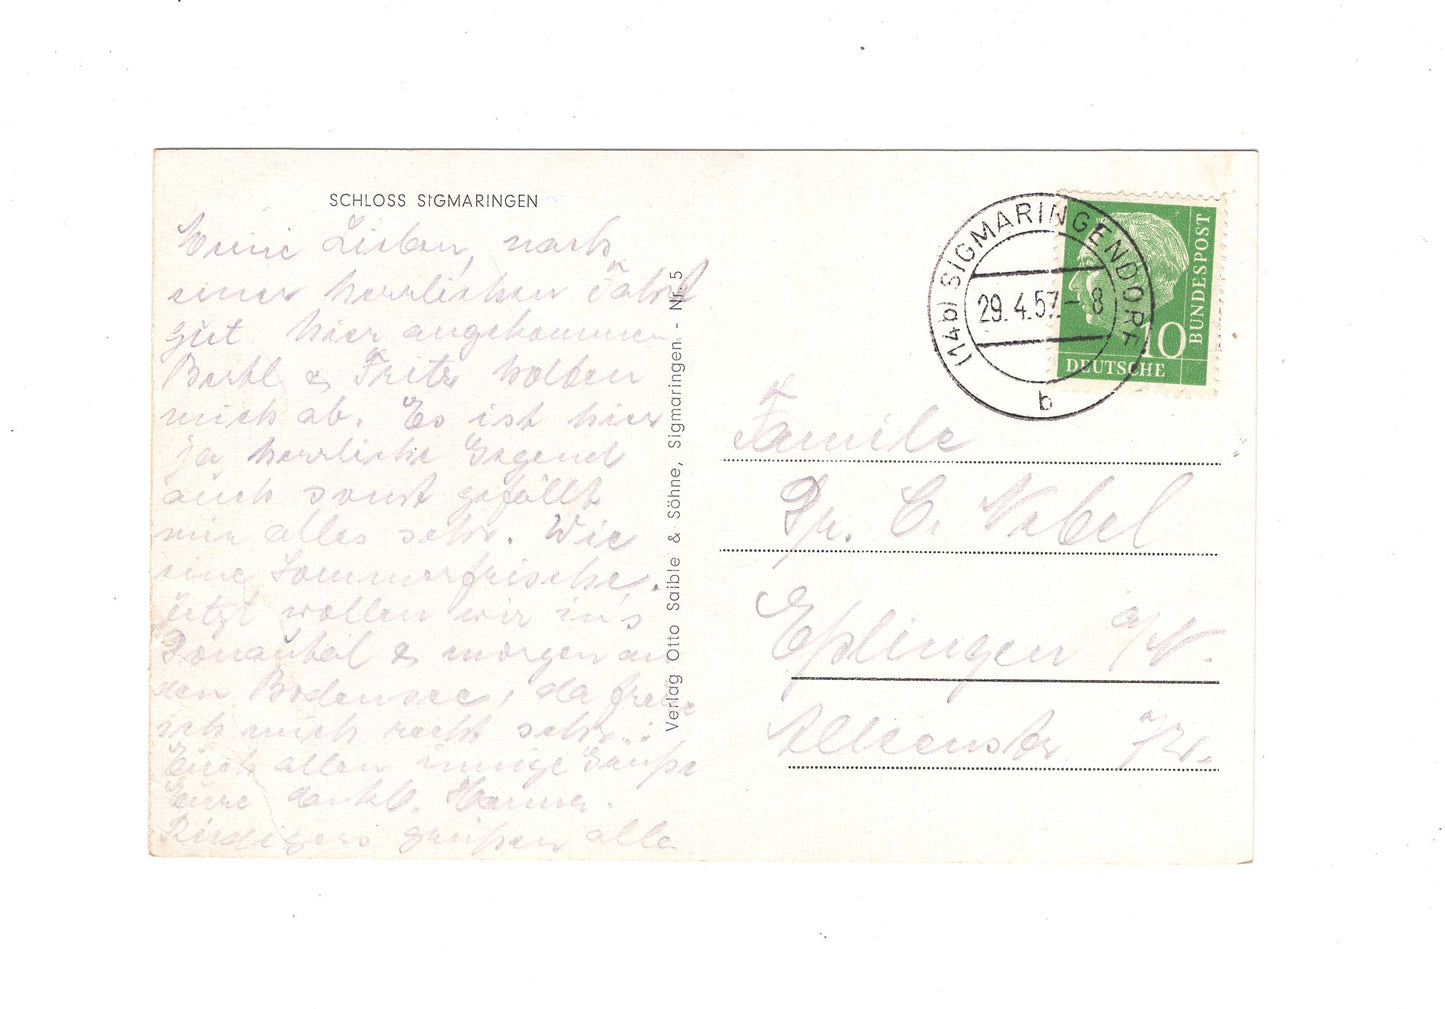 SCHLOSS SIGMARINGEN
Meine Lieben, nach
einer herrlichen Fahrt
gut hier angekommen
Bertl & Fritz holten
mich ab. Es ist hier
ja herrliche Gegend
auch sonst gefällt
mir alles sehr. Wie
eine Sommerfrische.
Jetzt wollen wir in's
Donautal & morgen an
den Bodensee, da freue
ich mich recht sehr.
Euch allen innige Grüße
Eure Hanna.
grüßen alle
Verlag Otto Saible & Söhne, Sigmaringen - Nr. 5
(14b) SIGMARINGENDORF
29.4.57.-8
b
BUNDESPOST
10
DEUTSCHE
Familie
Dr. E. Nabel
Eßlingen a/N.